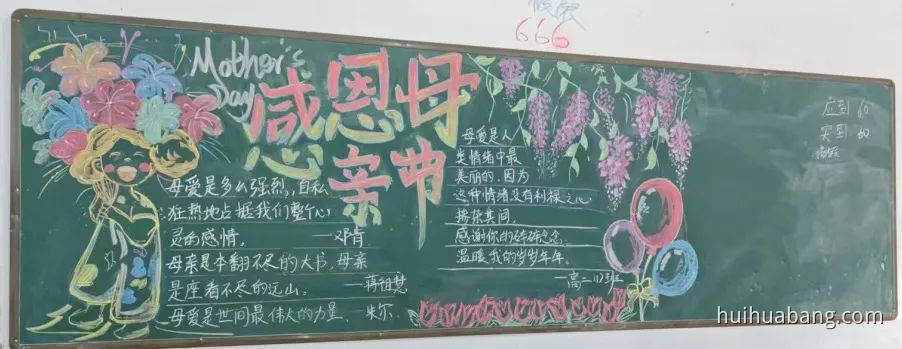 666
Mother's
Day
感恩母
亲节
母爱是多么强烈,自私
狂热地占据我们整个心
灵的感情。——邓肯
母亲是本翻不尽的大书,母亲
是座看不尽的远山。——蒋祖慧
母爱是世间最伟大的力量。——米尔
母爱是人
类情绪中最
美丽的,因为
这种情绪没有利禄之心
掺杂其间。
感谢你的碎碎念念
温暖我的岁岁年年。
应到 60
实到 60
huihuabang.com